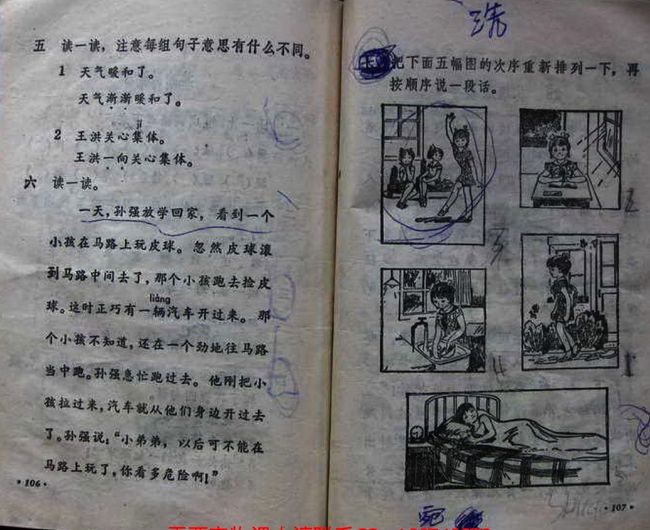 五 读一读，注意每组句子意思有什么不同。
1 天气暖和了。
天气渐渐暖和了。
jí
2 王洪关心集体。
王洪一向关心集体。
六 读一读。
一天，孙强放学回家，看到一个
小孩在马路上玩皮球。忽然皮球滚
到马路中间去了，那个小孩跑去捡皮
liàng
球。这时正巧有一辆汽车开过来。那
个小孩不知道，还在一个劲地往马路
当中跑。孙强急忙跑过去。他刚把小
孩拉过来，汽车就从他们身边开过去
了。孙强说：“小弟弟，以后可不能在
马路上玩了，你看多危险啊！”
·106·
把下面五幅图的次序重新排列一下，再
按顺序说一段话。
2
3
4
1
5
·107·